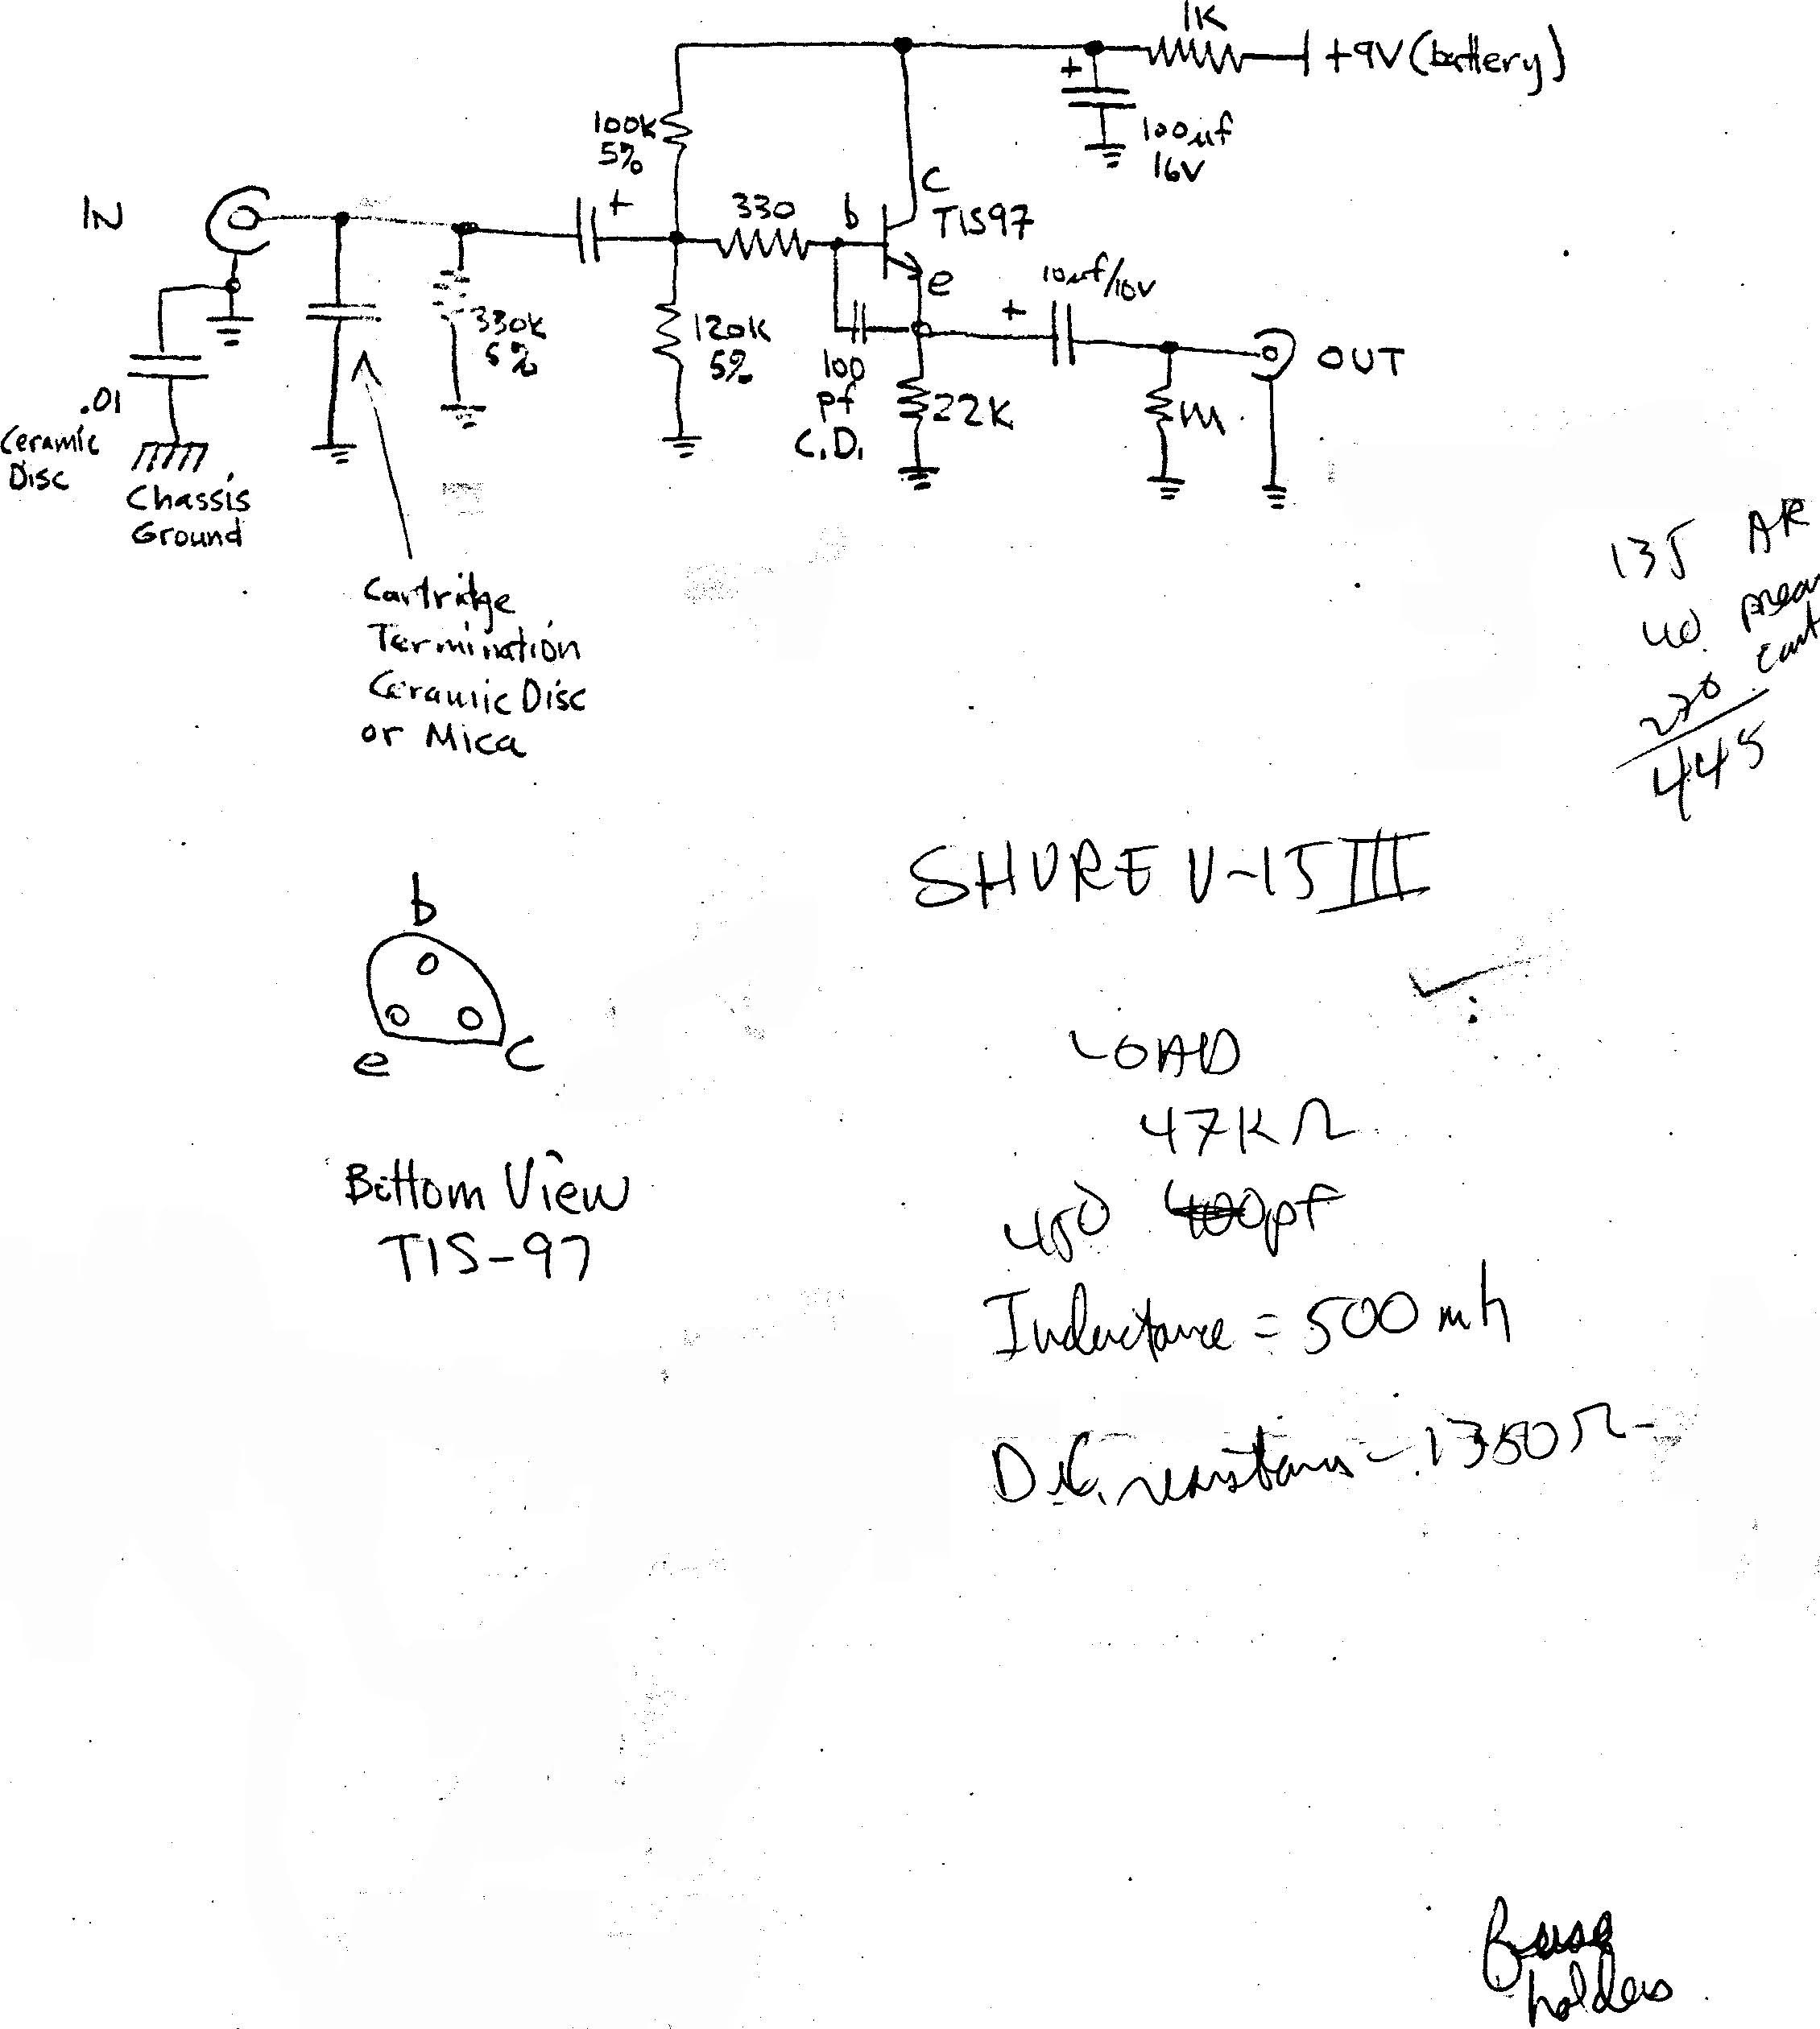 1K
+9V (battery)
+
100µf
16V
100K
5%
c
TIS97
IN
+
330
b
e
10µf/10V
+
330K
5%
120K
5%
100
pf
C.D.
22K
1M
OUT
.01
Ceramic
Disc
Chassis
Ground
Cartridge
Termination
Ceramic Disc
or Mica
135 AR
40
270
445
SHURE V-15 III
b
e
c
LOAD
47K Ω
450 400pf
Bottom View
TIS-97
Inductance = 500 mh
D.C. resistance - 1350 Ω
fuse
holders